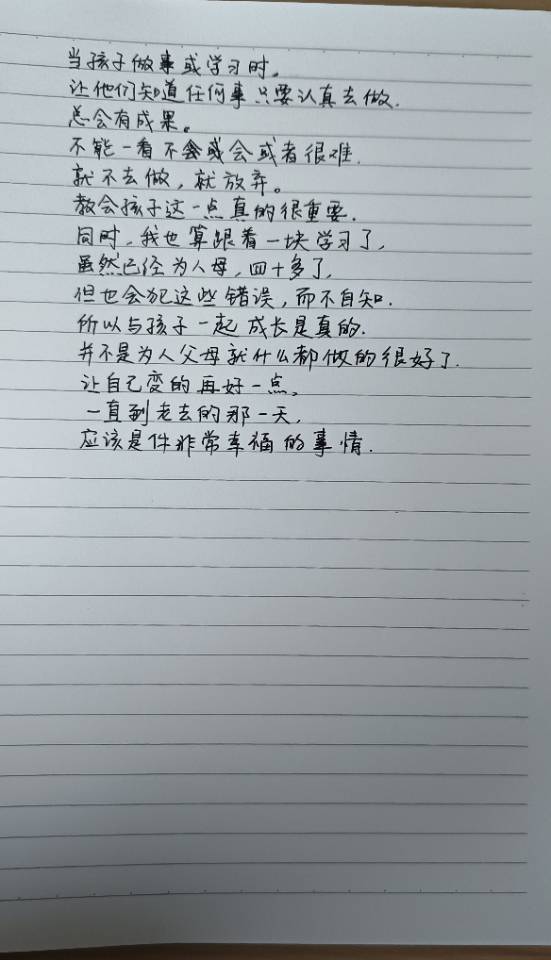 当孩子做事或学习时。
让他们知道任何事只要认真去做.
总会有成果。
不能一看不会或者很难.
就不去做，就放弃。
教会孩子这一点真的很重要.
同时，我也算跟着一块学习了，
虽然已经为人母，四十多了，
但也会犯这些错误，而不自知.
所以与孩子一起成长是真的.
并不是为人父母就什么都做的很好了.
让自己变的再好一点。
一直到老去的那一天,
应该是件非常幸福的事情.